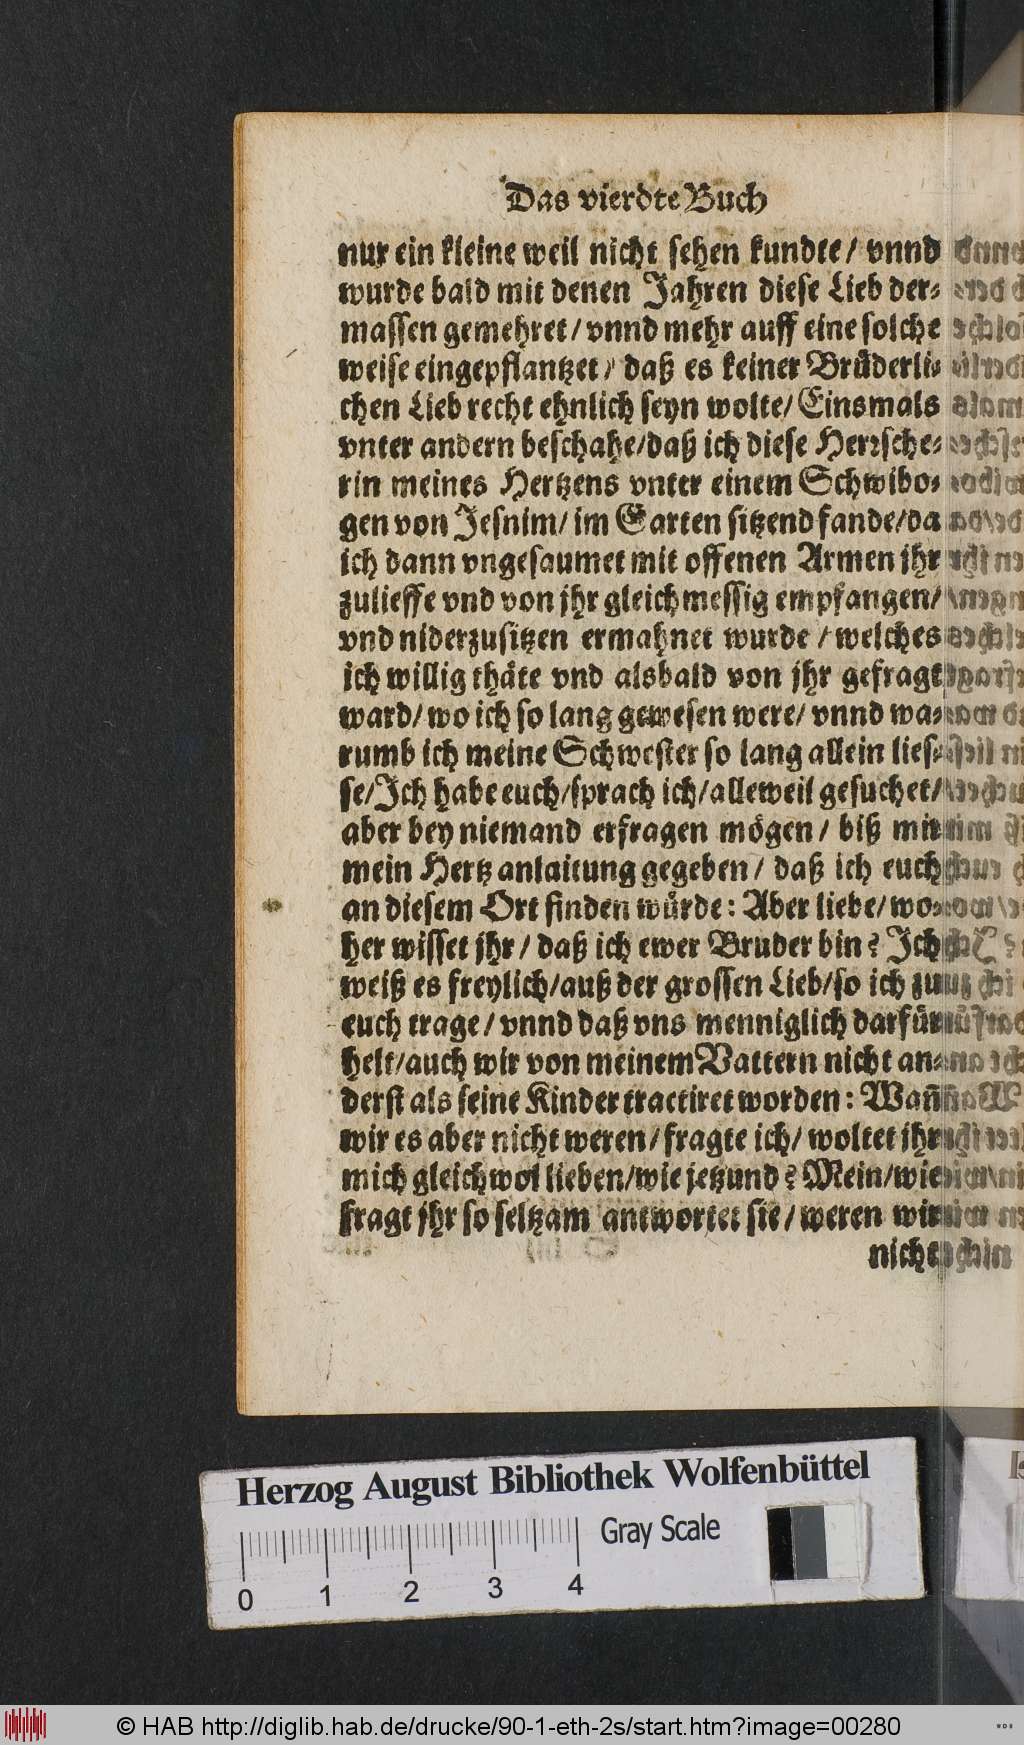 Das vierdte Buch
nur ein kleine weil nicht sehen kundte/ vnnd
wurde bald mit denen Jahren diese Lieb der⸗
massen gemehret/ vnnd mehr auff eine solche
weise eingepflantzet/ daß es keiner Brüderli⸗
chen Lieb recht ehnlich seyn wolte/ Einsmals
vnter andern beschahe/daß ich diese Herrsche⸗
rin meines Hertzens vnter einem Schwibo⸗
gen von Jesnim/ im Garten sitzend fande/da
ich dann vngesaumet mit offenen Armen jhr
zulieffe vnd von jhr gleichmessig empfangen/
vnd niderzusitzen ermahnet wurde / welches
ich willig thäte vnd alsbald von jhr gefragt
ward/ wo ich so lang gewesen were/ vnnd wa⸗
rumb ich meine Schwester so lang allein lies⸗
se/Ich habe euch/sprach ich/alleweil gesuchet/
aber bey niemand erfragen mögen/ biß mir
mein Hertz anlaitung gegeben/ daß ich euch
an diesem Ort finden würde: Aber liebe/ wo⸗
her wisset jhr/ daß ich ewer Bruder bin? Ich
weiß es freylich/auß der grossen Lieb/so ich zu
euch trage/ vnnd daß vns menniglich darfür
helt/auch wir von meinem Vattern nicht an⸗
derst als seine Kinder tractiret worden: Wañ
wir es aber nicht weren/ fragte ich/ woltet jhr
mich gleichwol lieben/wie jetzund? Mein/wie
fragt jhr so seltzam antwortet sie/ weren wir
nicht
Herzog August Bibliothek Wolfenbüttel
Gray Scale
0 1 2 3 4
© HAB http://diglib.hab.de/drucke/90-1-eth-2s/start.htm?image=00280